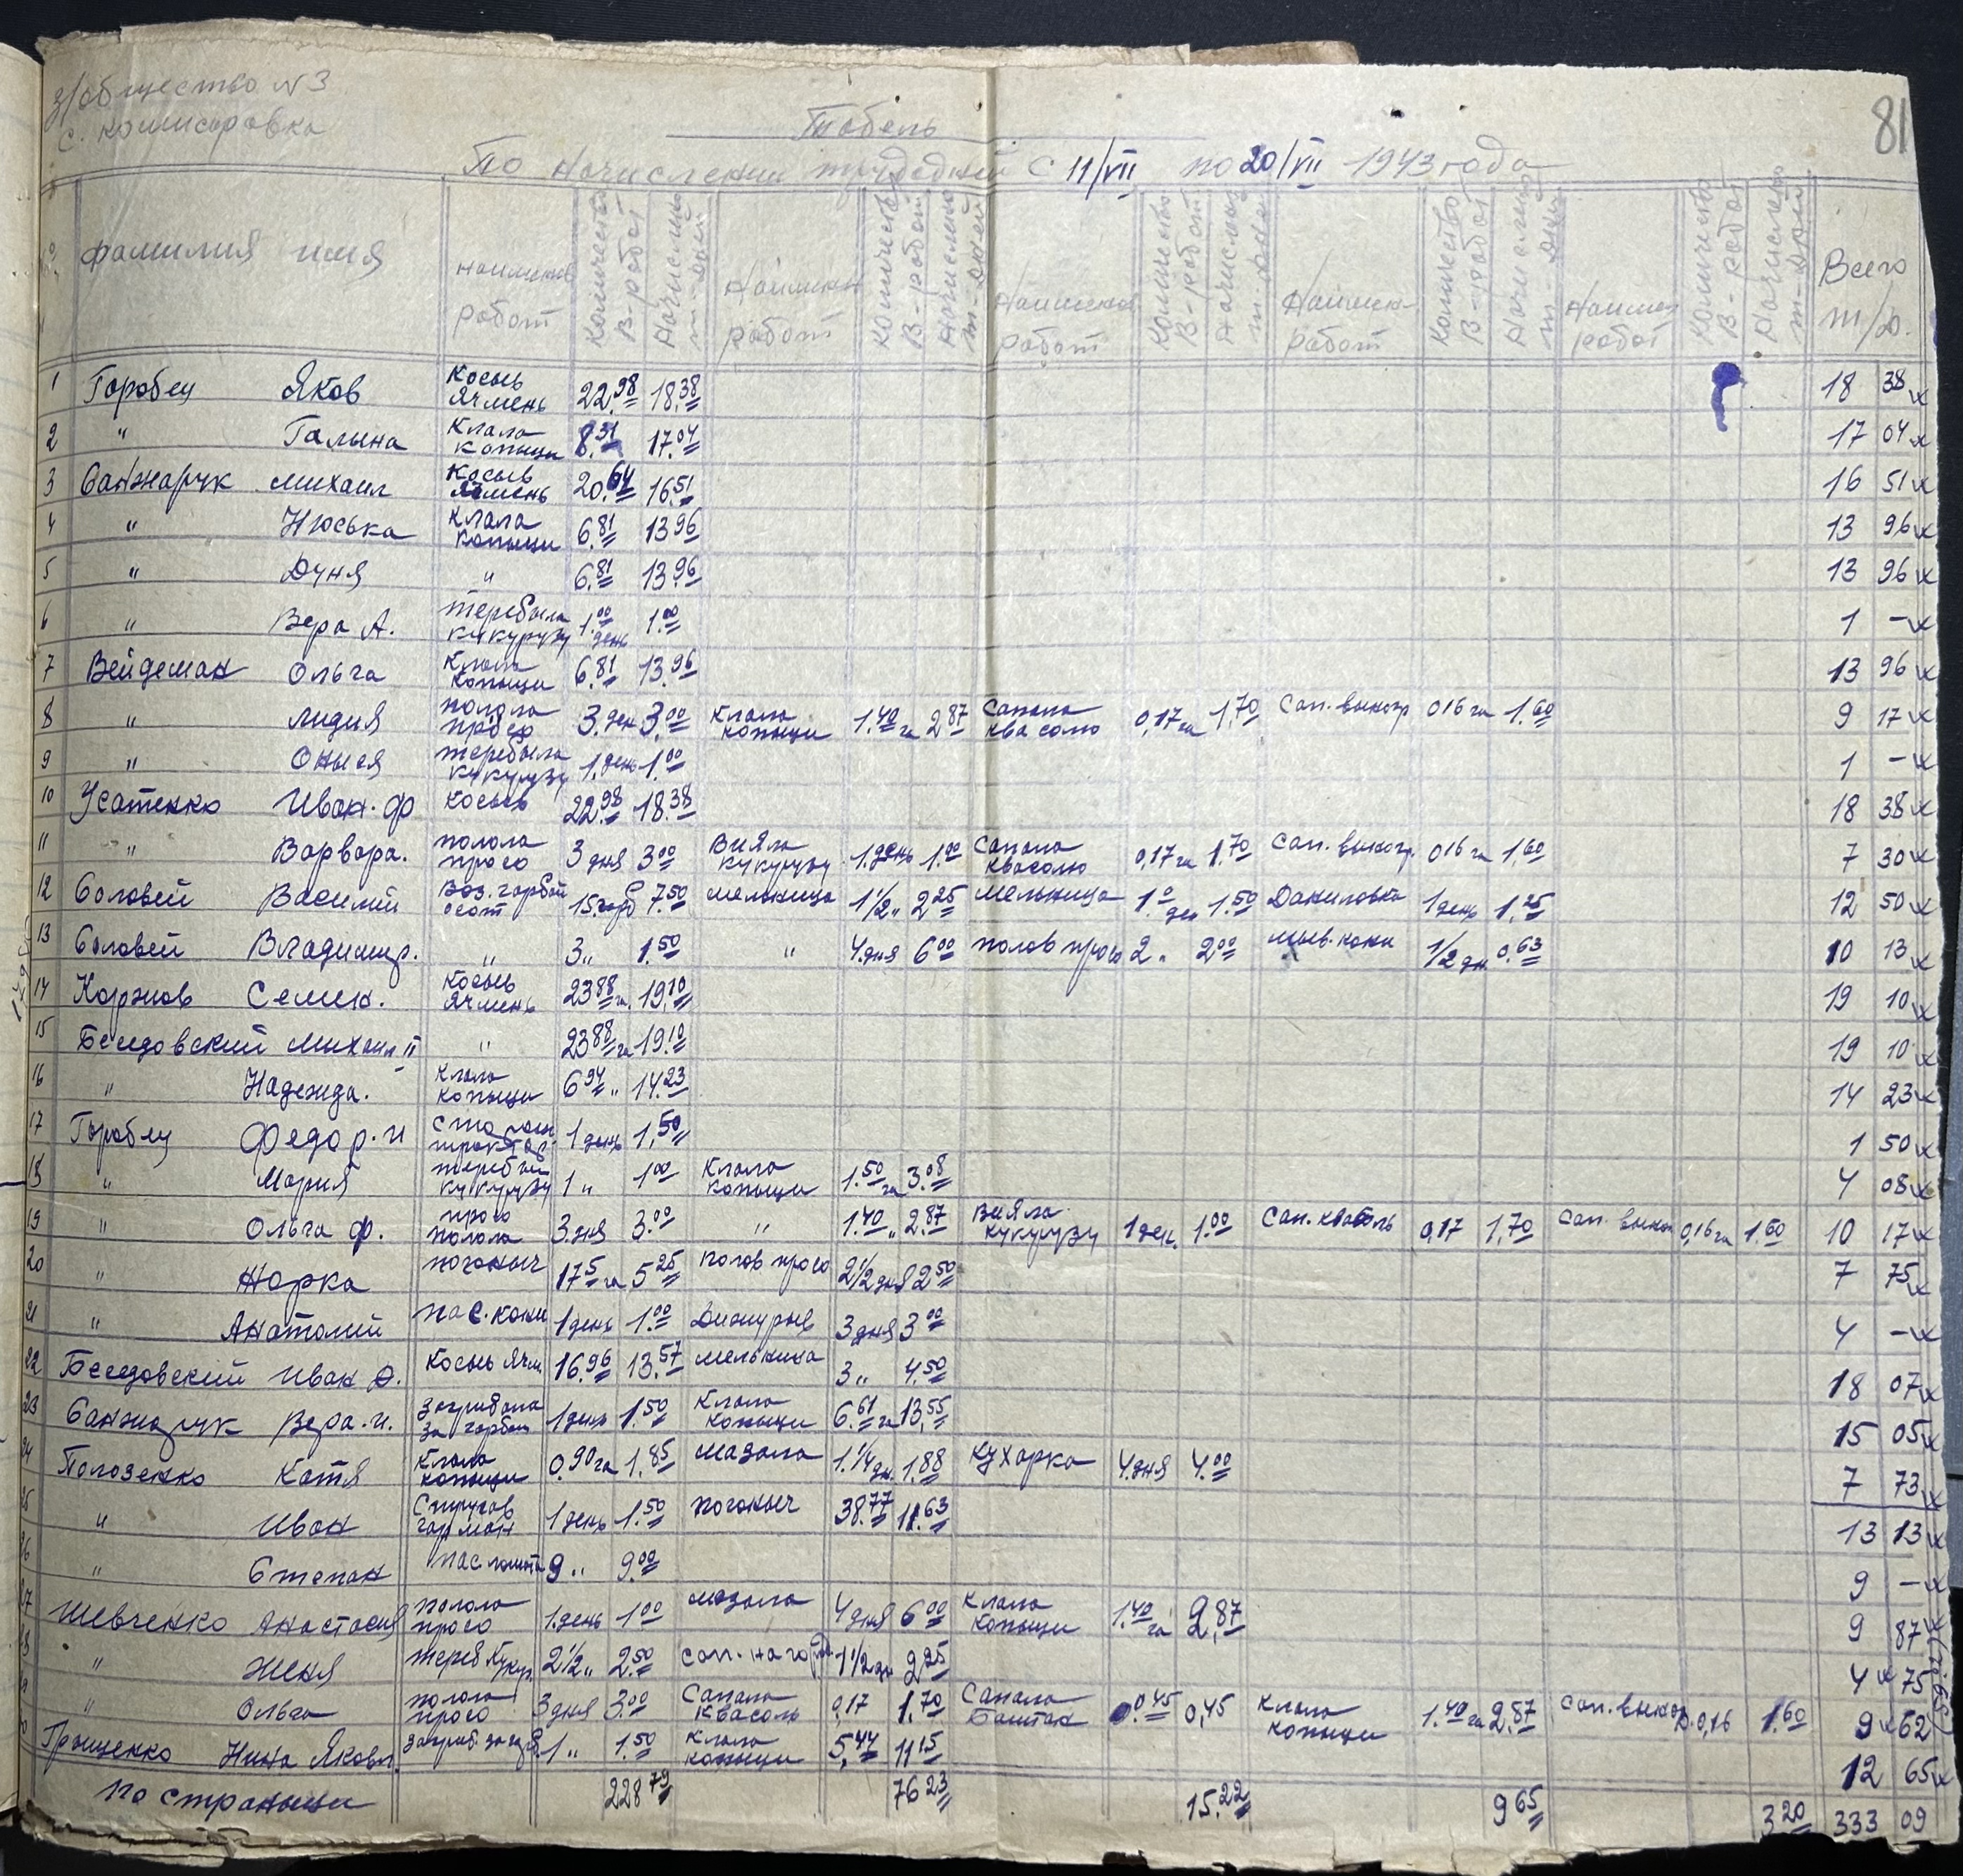 з/общество №3
с. комисаровка
81
Табель
По Начислении трудодней с 11/VII по 20/VII 1943 года
Фамилия имя Наименов работ Количество В-работ Начислено т-дней Наимен работ Количество В-работ Начислено т-дней Наименов работ Количество В-работ Начислено т-дней Наимен работ Количество В-работ Начислено т-дней Наимен работ Количество В-работ Начислено т-дней Всего т/д.
1 Горобец Яков Косыв Ячмень 22.98 18.38 18 38
2 " Галына Клала копыци 8.31 17.04 17 04
3 Санжарук михаил Косыв Ячмень 20.64 16.51 16 51
4 " Нюська Клала копыци 6.81 13.96 13 96
5 " Дуня " 6.81 13.96 13 96
6 " Вера А. теребыла кукурузу 1.00 день 1.00 1 -
7 Вейдеман Ольга Клала Копыци 6.81 13.96 13 96
8 " лидия полола просо 3 ден 3.00 Клала копыци 1.40 га 2.87 Сапала квасолю 0,17 га 1,70 Сап. выногр 016 га 1.60 9 17
9 " Оныся теребыла кукурузу 1 день 1.00 1 -
10 Усатенко Иван. ф Косыв 22.98 18.38 18 38
11 " Варвара. полола просо 3 дня 3.00 Вияла кукурузу 1 день 1.00 Сапала Квасолю 0,17 га 1.70 Сап. выногр. 016 га 1,60 7 30
12 Соловей Василий Воз. гарбой 15 гарб 7.50 мельница 1 1/2 " 2.25 мельница 1.0 ден 1.50 Даниловка 1 день 1.25 12 50
13 Соловей Владимир. " 3 " 1.50 " 4 дня 6.00 полов просо 2 " 2.00 кони 1/2 дн 0.63 10 13
14 Коржов Семен. Косыв Ячмень 23.88 га 19.10 19 10
15 Беседовский михаил " 23.88 га 19.10 19 10
16 " Надежда. Клала копыци 6.94 " 14.23 14 23
17 Горобец Федор. И 1 день 1,50 1 50
18 " Мария кукурузу 1 " 1.00 Клала копыци 1.50 га 3.08 4 08
19 " Ольга ф. просо полола 3 дня 3.00 " 1.40 " 2.87 Вияла кукурузу 1 ден. 1.00 Сап. квасоль 0,17 1,70 Сап. 0,16 га 1.60 10 17
20 " Жорка погоныч 17.5 га 5.25 полов просо 2 1/2 дня 2.50 7 75
21 " Анатолий пас. кони 1 день 1.00 Дижурыв 3 дня 3.00 4 -
22 Беседовский Иван Косыв Ячм 16.96 13.57 мельница 3 " 4.50 18 07
23 Санжарук Вера. и. за гарбою 1 день 1.50 Клала Копыци 6.61 га 13.55 15 05
24 Полозенко Катя Клала копыци 0.90 га 1.85 мазала 1.1/4 дн. 1.88 Кухарка 4 дня 4.00 7 73
25 " Иван Стругав гарман 1 день 1.50 погоныч 38.77 11.63 13 13
26 " Степан пас 9 " 9.00 9 -
27 Шевченко Анастасия полола просо 1 день 1.00 мазала 4 дня 6.00 Клала Копыци 1.40 га 2.87 9 87
" Женя Тереб Кукур. 2 1/2 " 2.50 1 1/2 дн 2.25 4 75
" Ольга полола просо 3 дня 3.00 Сапала Квасоль 0,17 1.70 Сапала Баштан 0.45 0,45 Клала копыци 1.40 га 2.87 Сап. 0,16 1.60 9 62
Грищенко Нина Яковл. 1 " 1.50 Клала копыци 5.44 11.15 12 65
По страныци 228 79 76 23 15.22 9 65 3 20 333 09